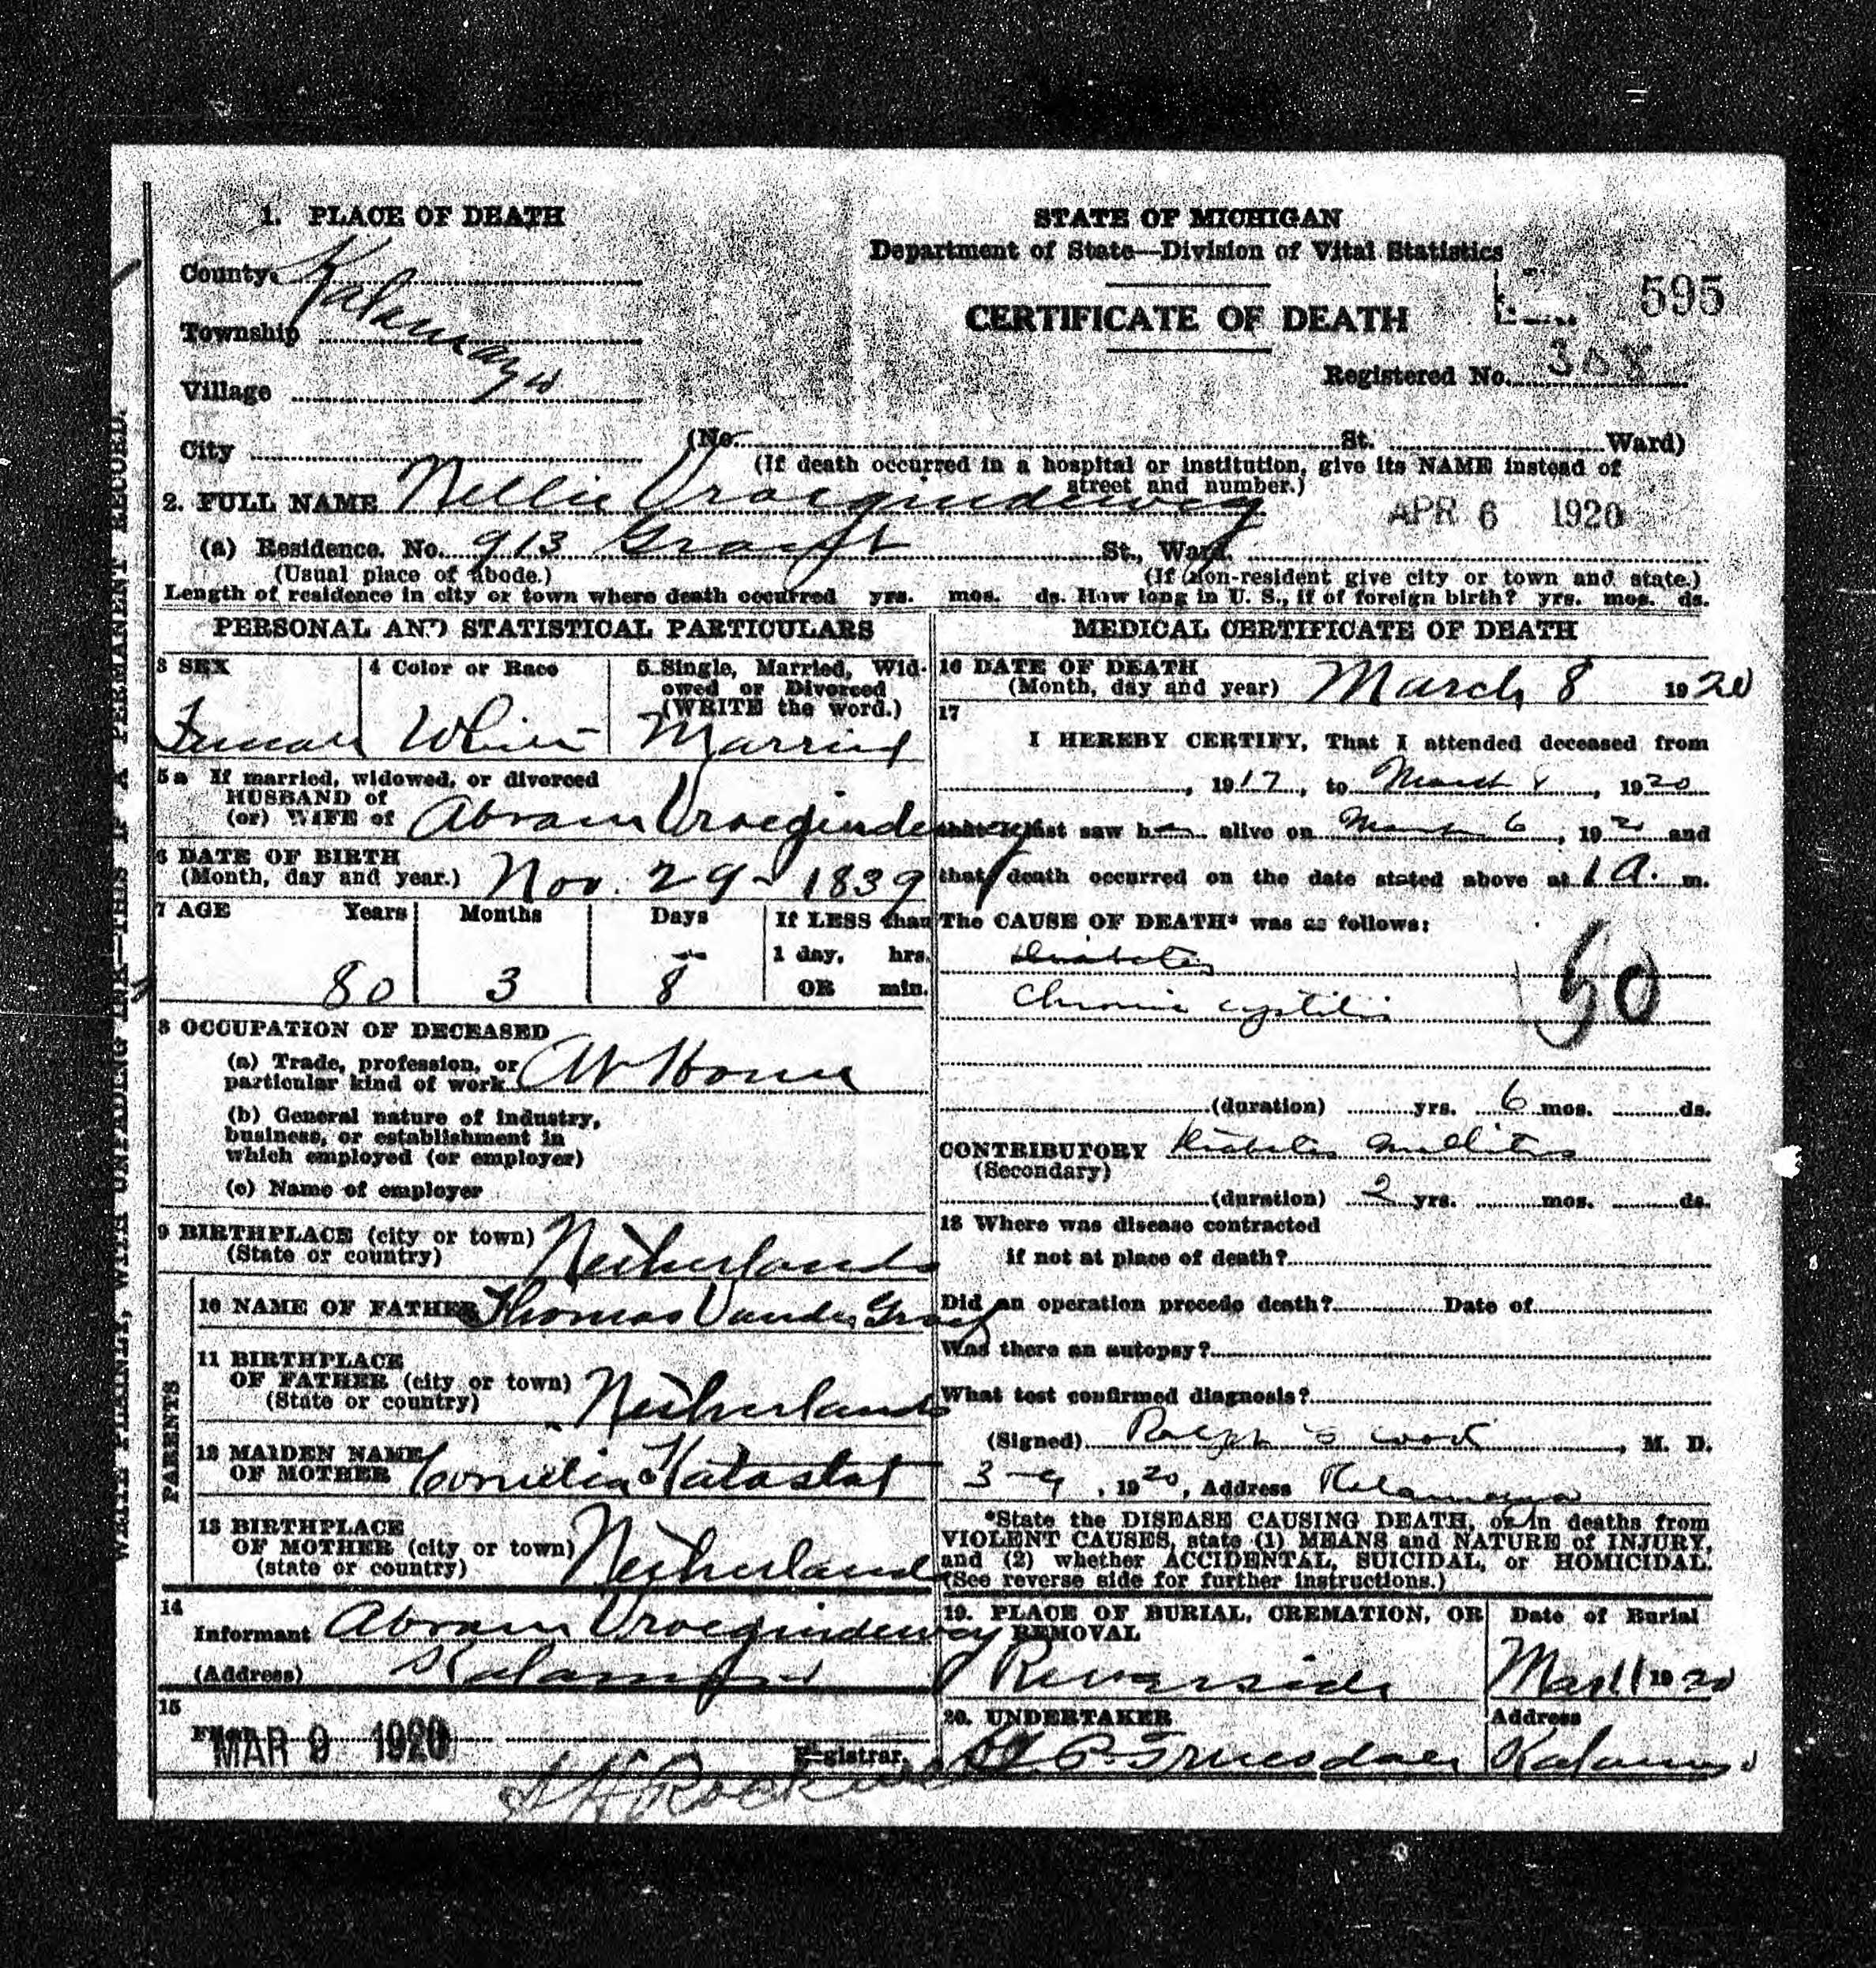 1. PLACE OF DEATH
County Kalamazoo
Township
Village
City
STATE OF MICHIGAN
Department of State—Division of Vital Statistics
CERTIFICATE OF DEATH
595
Registered No.
(No. St. Ward)
(If death occurred in a hospital or institution, give its NAME instead of street and number.)
2. FULL NAME Nellie Vroegindewey
APR 6 1920
(a) Residence. No. 913 St., Ward.
(Usual place of abode.) (If non-resident give city or town and state.)
Length of residence in city or town where death occurred yrs. mos. ds. How long in U. S., if of foreign birth? yrs. mos. ds.
PERSONAL AND STATISTICAL PARTICULARS
3 SEX
Female
4 Color or Race
White
5. Single, Married, Widowed or Divorced (WRITE the word.)
Married
5a If married, widowed, or divorced
HUSBAND of
(or) WIFE of Abram Vroegindewey
6 DATE OF BIRTH
(Month, day and year.) Nov. 29 - 1839
7 AGE Years Months Days If LESS than
1 day, hrs.
OR min.
80 3 8
8 OCCUPATION OF DECEASED
(a) Trade, profession, or
particular kind of work At Home
(b) General nature of industry,
business, or establishment in
which employed (or employer)
(c) Name of employer
9 BIRTHPLACE (city or town)
(State or country) Netherlands
PARENTS
10 NAME OF FATHER Thomas Vander Graaf
11 BIRTHPLACE
OF FATHER (city or town)
(State or country) Netherlands
12 MAIDEN NAME
OF MOTHER Cornelia Katastat
13 BIRTHPLACE
OF MOTHER (city or town)
(state or country) Netherlands
14
Informant Abram Vroegindewey
(Address) Kalamazoo
15
Filed MAR 9 1920
Registrar.
MEDICAL CERTIFICATE OF DEATH
16 DATE OF DEATH
(Month, day and year) March 8 1920
17
I HEREBY CERTIFY, That I attended deceased from
, 1917, to March , 1920
that I last saw her alive on March 6, 1920 and
that death occurred on the date stated above at 1 A. m.
The CAUSE OF DEATH* was as follows:
Diabetes
Chronic cystitis
50
(duration) yrs. 6 mos. ds.
CONTRIBUTORY Diabetes mellitus
(Secondary)
(duration) 2 yrs. mos. ds.
18 Where was disease contracted
if not at place of death?
Did an operation precede death? Date of
Was there an autopsy?
What test confirmed diagnosis?
(Signed) Ralph E Cook, M. D.
3-9, 1920, Address Kalamazoo
*State the DISEASE CAUSING DEATH, or in deaths from
VIOLENT CAUSES, state (1) MEANS and NATURE of INJURY,
and (2) whether ACCIDENTAL, SUICIDAL, or HOMICIDAL.
(See reverse side for further instructions.)
19. PLACE OF BURIAL, CREMATION, OR
REMOVAL
Riverside
Date of Burial
Mar 11 1920
20. UNDERTAKER
Truesdale
Address
Kalamazoo
WRITE PLAINLY, WITH UNFADING INK—THIS IS A PERMANENT RECORD.